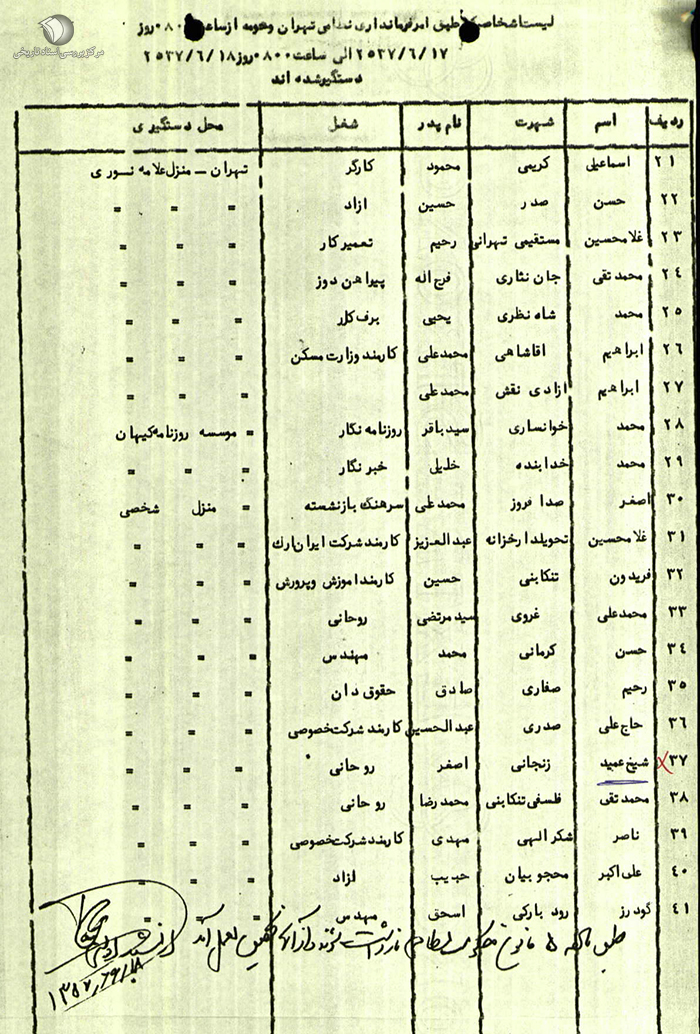 مرکز بررسی اسناد تاریخی
لیست اشخاصیکه طبق امر فرمانداری نظامی تهران وحومه از ساعت ۰۸۰۰ روز
۲۵۳۷/۶/۱۷ الی ساعت ۰۸۰۰ روز ۲۵۳۷/۶/۱۸
دستگیر شده اند
ردیف اسم شهرت نام پدر شغل محل دستگیری
۲۱ اسماعیل کریمی محمود کارگر تهران – منزل علامه نوری
۲۲ حسن صدر حسین ازاد = = =
۲۳ غلامحسین مستقیمی تهرانی رحیم تعمیر کار = = =
۲۴ محمد تقی جان نثاری فرج اله پیراهن دوز = = =
۲۵ محمد شاه نظری یحیی برف کار = = =
۲۶ ابراهیم اقاشاهی محمد علی کارمند وزارت مسکن = = =
۲۷ ابراهیم ازادی نقش محمد علی = = =
۲۸ محمد خوانساری سید باقر روزنامه نگار = موسسه روزنامه کیهان
۲۹ محمد خدابنده خلیل خبر نگار = = =
۳۰ اصغر صدا فروز محمد علی سرهنگ بازنشسته = منزل شخصی
۳۱ غلامحسین تحویلدار خزانه عبد العزیز کارمند شرکت ایران ارک = = =
۳۲ فریدون تنکابنی حسین کارمند اموزش وپرورش = = =
۳۳ محمد علی غروی سید مرتضی روحانی = = =
۳۴ حسن کرمانی محمد مهندس = = =
۳۵ رحیم صفاری صادق حقوق دان = = =
۳۶ حاج علی صدری عبد الحسین کارمند شرکت خصوصی = = =
۳۷ شیخ عمید زنجانی اصغر روحانی = = =
۳۸ محمد تقی فلسفی تنکابنی محمد رضا روحانی = = =
۳۹ ناصر شکر الهی مهدی کارمند شرکت خصوصی = = =
۴۰ علی اکبر محجوبیان حبیب ازاد = = =
۴۱ گودرز رودبارکی اسحق مهندس
طبق ماده ۵ قانون حکومت نظامی بازداشت شوند و از آنها تحقیق بعمل آید
۱۳۵۷/۶/۱۸